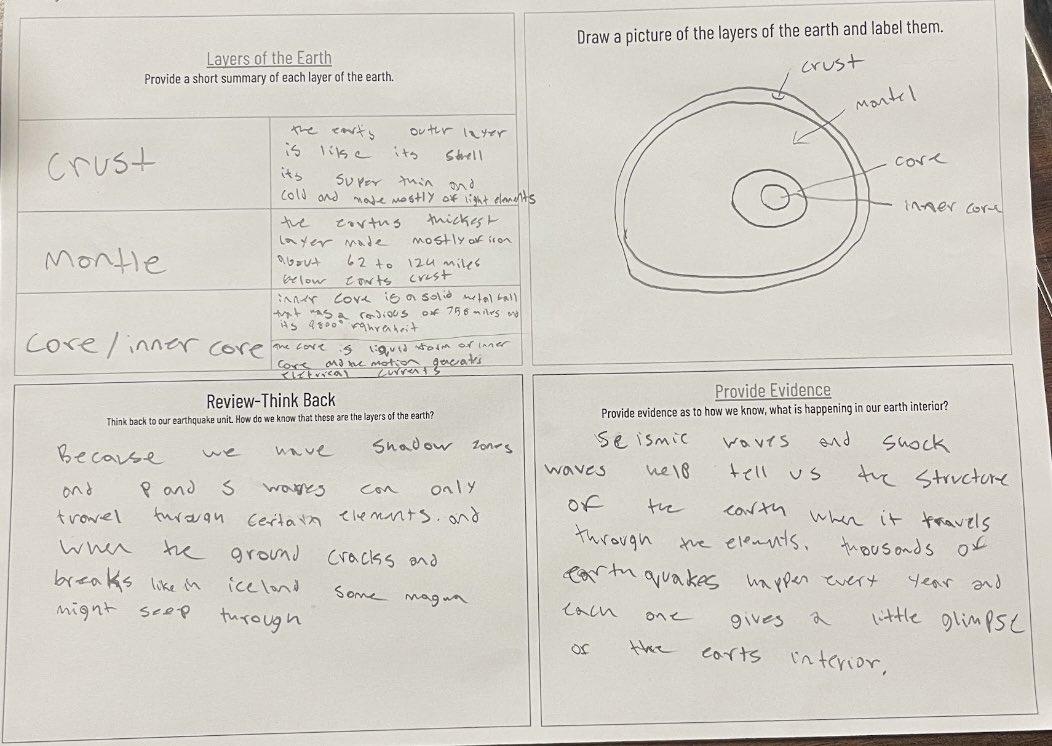 Layers of the Earth
Provide a short summary of each layer of the earth.
Crust
the earts outer layer
is like its shell
its super thin and
cold and made mostly of light elements
Montle
the earths thickest
layer made mostly of iron
about 62 to 124 miles
below earts crust
Core / inner core
inner core is a solid metal ball
that has a radious of 758 miles and
its 9800° fahrenheit
the core is liquid form of inner
core and the motion generates
eletrical currents
Draw a picture of the layers of the earth and label them.
crust
mantel
core
inner core
Review-Think Back
Think back to our earthquake unit. How do we know that these are the layers of the earth?
Because we have shadow zones
and P and S waves can only
travel through certain elements. and
when the ground cracks and
breaks like in iceland some magma
might seep through
Provide Evidence
Provide evidence as to how we know, what is happening in our earth interior?
Seismic waves and shock
waves help tell us the structure
of the earth when it travels
through the elements. thousands of
earthquakes happen every year and
each one gives a little glimpse
of the earts interior.